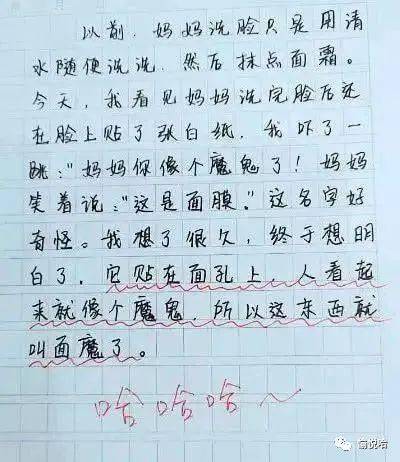 以前，妈妈洗脸只是用清
水随便洗洗，然后抹点面霜。
今天，我看见妈妈洗完脸后还
在脸上贴了张白纸，我吓了一
跳："妈妈你像个魔鬼了！妈妈
笑着说："这是面膜。"这名字好
奇怪。我想了很久，终于想明
白了，它贴在面孔上，人看起
来就像个魔鬼，所以这东西就
叫面魔了。
哈哈哈～